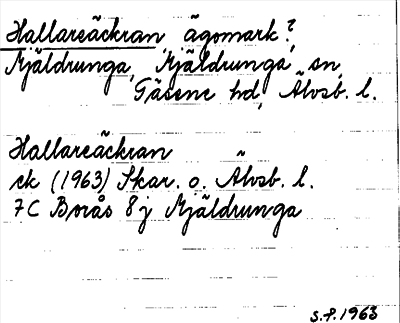 Hallareäckran, ägomark?,
Mjäldrunga, Mjäldrunga, sn,
Gäsene hd, Älvsb. l.
Hallareäckran
ek (1963) Skar. o. Älvsb. l.
7C Borås 8j Mjäldrunga
S.F. 1963